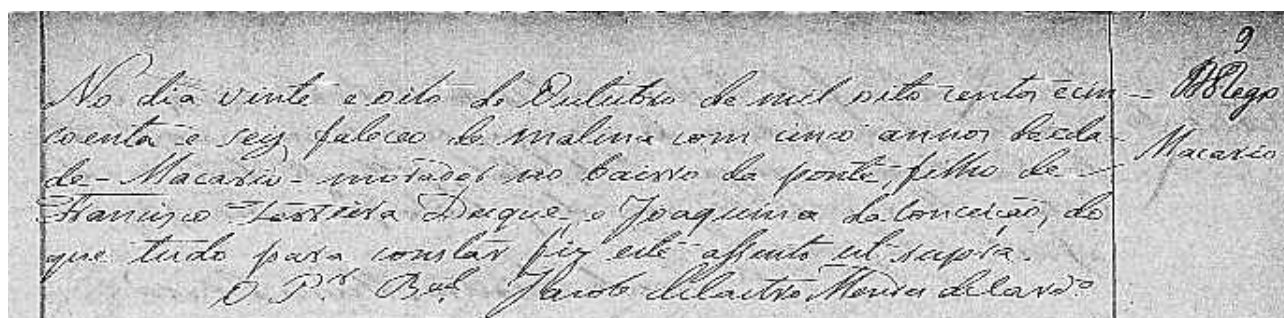 No dia vinte e oito de Outubro de mil oito centos e cin
coenta e seis, faleceo de malina com cinco annos de eda-
de - Macario - morador no bairro da ponte, filho de
Francisco Teixeira Duque, e Joaquina da Conceição, do
que tudo para constar fiz este assento ut supra.
O P.r Bal. Jacob de Castro
9
Macario